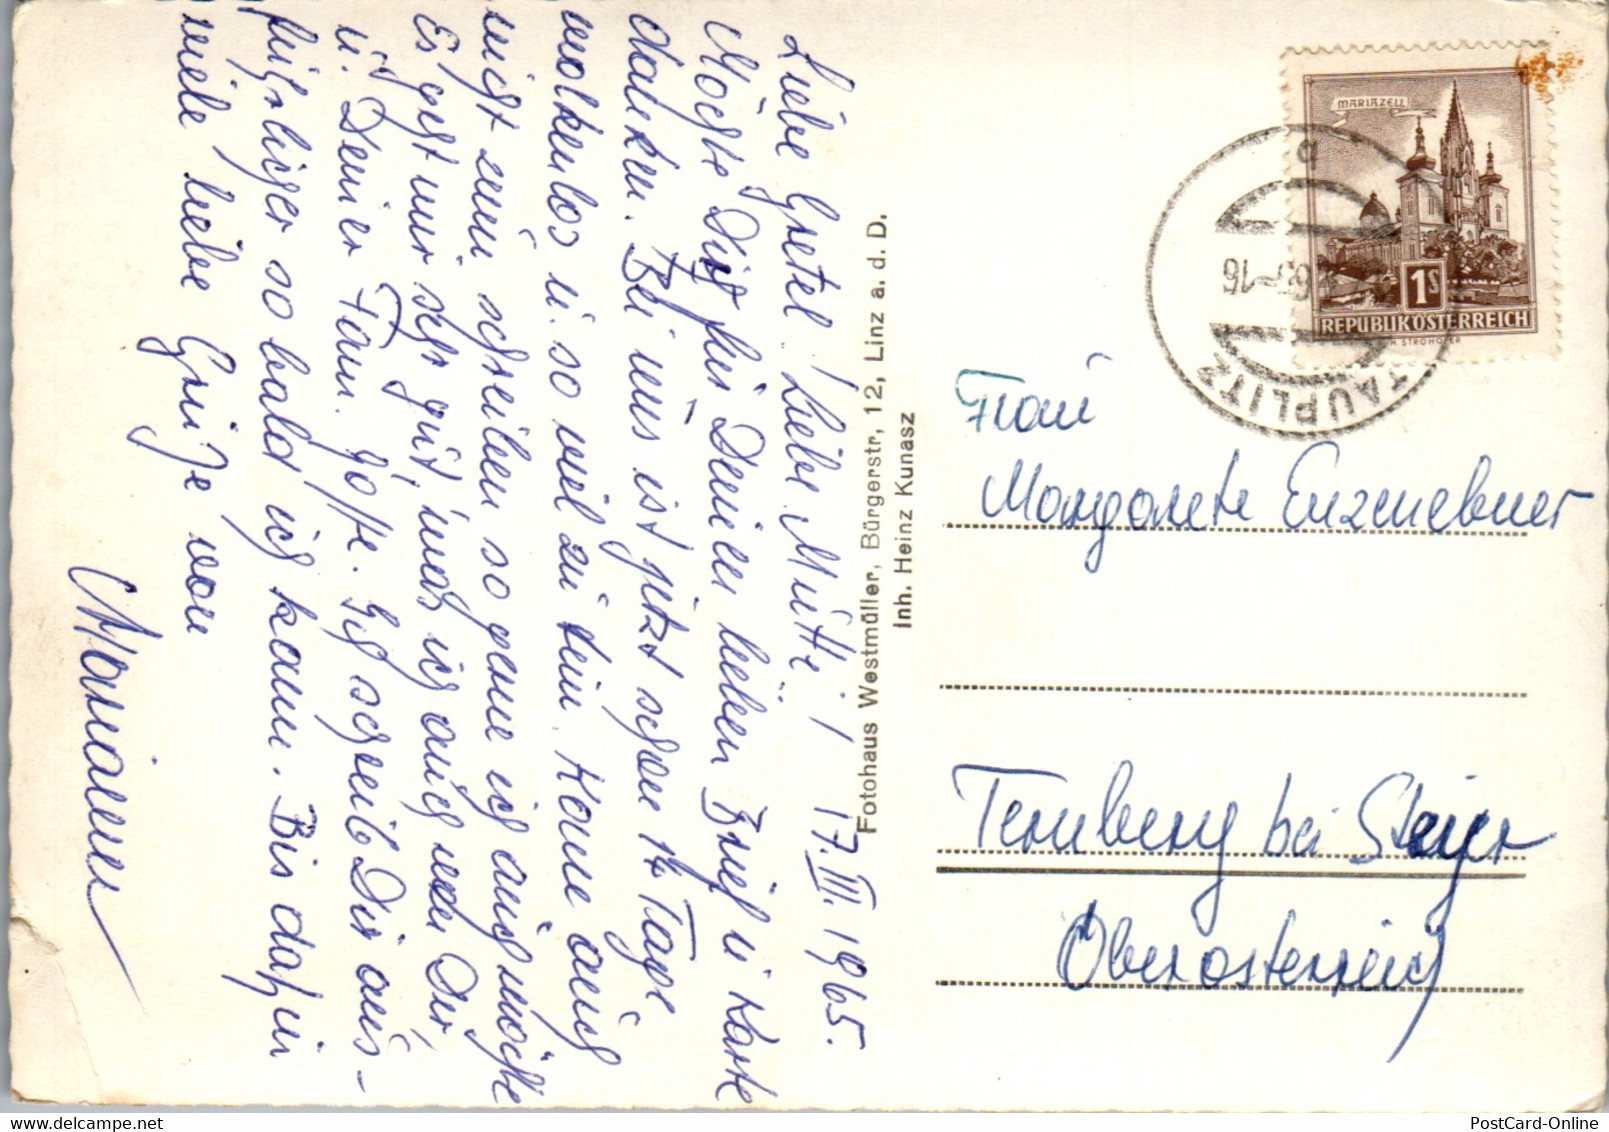 Liebe Gretel! Liebe Mutti! 17.III.1965.
Möchte Dir für Deinen lieben Brief u. Karte
danken. Bei uns ist jetzt schon 14 Tage
wolkenlos u. so viel zu tun. Kome auch
nicht zum schreiben so gerne ich auch möchte
Es geht mir sehr gut, was ich auch von Dir
u. Deiner Fam. hoffe. Ich schreib Dir aus-
führlicher so bald ich kann. Bis dahin
viele liebe Grüße von
Marianne
Fotohaus Westmüller, Bürgerstr, 12, Linz a. d. D.
Inh. Heinz Kunasz
MARIAZELL
1S
REPUBLIK ÖSTERREICH
H. STROHOFER
TAUPLITZ
a
-16
Frau
Margarete Enzenebner
Ternberg bei Steyr
Oberösterreich
PostCard-Online